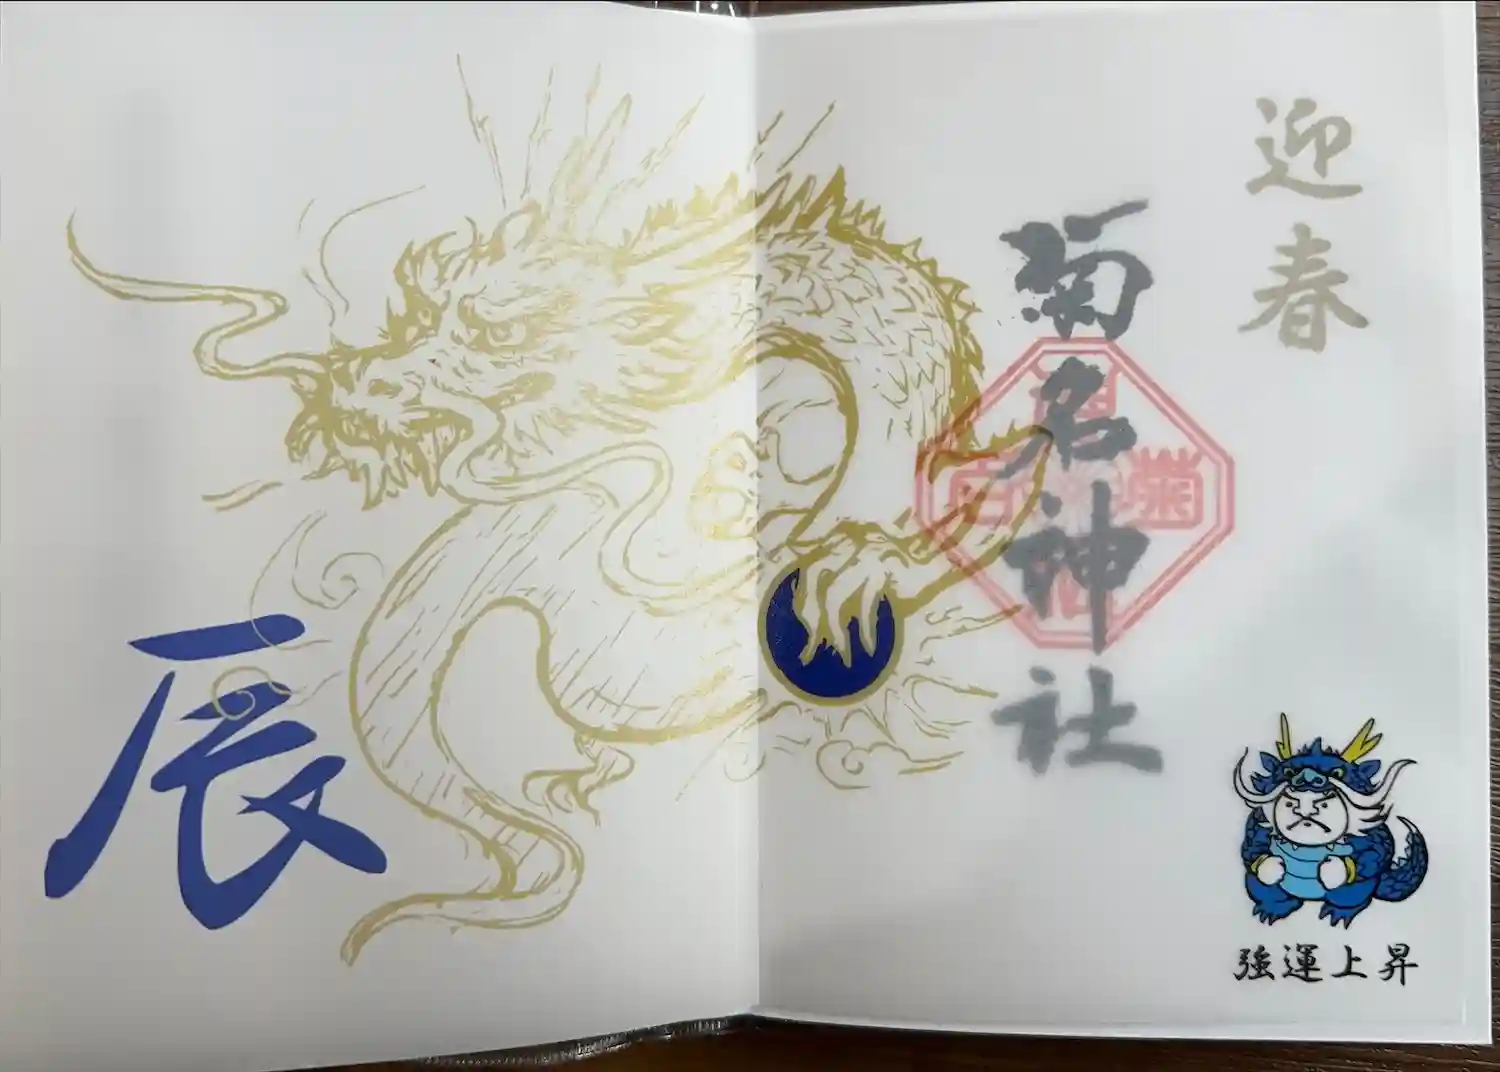 迎春
菊名神社
強運上昇
辰